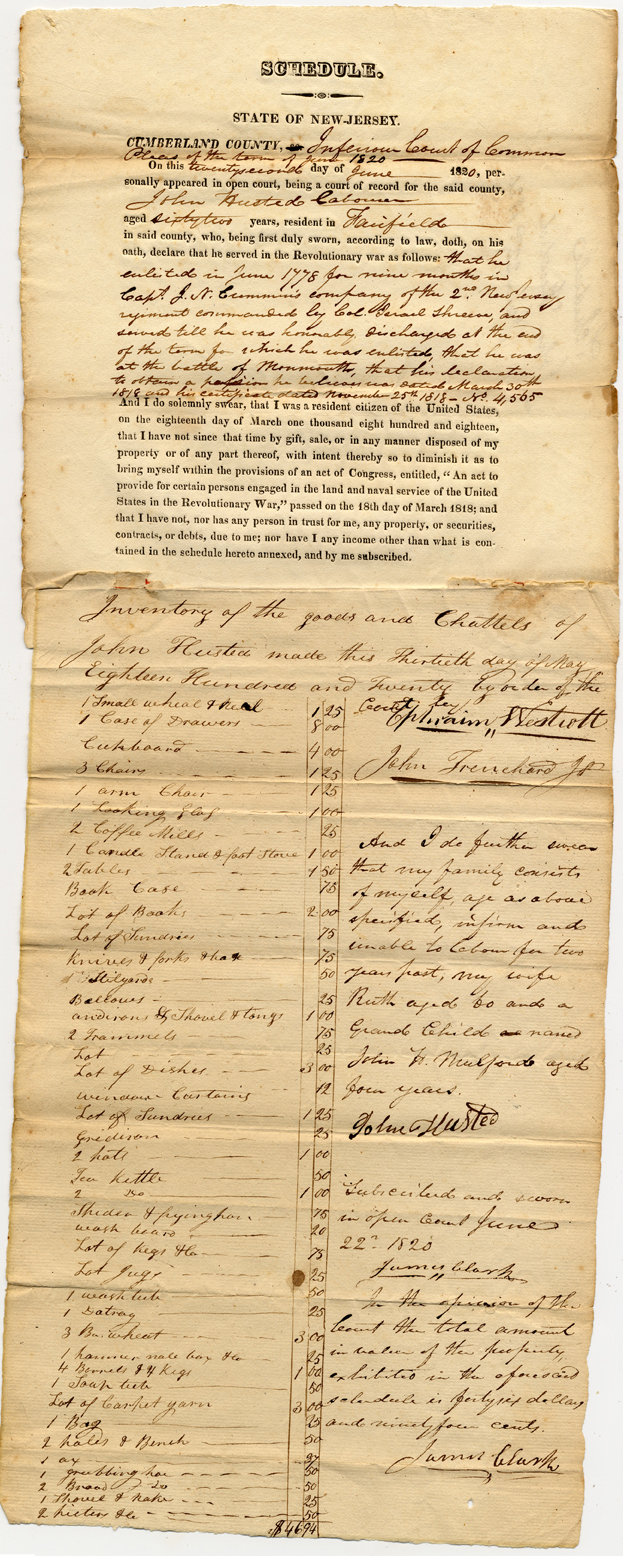 SCHEDULE.
STATE OF NEW-JERSEY.
CUMBERLAND COUNTY, ss Inferiour Court of Common
Pleas of the term of June 1820
On this twentysecond day of June 1820, per-
sonally appeared in open court, being a court of record for the said county,
John Husted Labourer
aged sixtytwo years, resident in Fairfield
in said county, who, being first duly sworn, according to law, doth, on his
oath, declare that he served in the Revolutionary war as follows: that he
enlisted in June 1778 for nine months in
Capt. J. N. Cummins company of the 2nd New Jersey
regiment commanded by Col. Israel Shreve, and
served till he was honorably discharged at the end
of the term for which he was enlisted, that he was
at the battle of Monmouth, that his declaration
to obtain a pension he believes was dated March 30th
1818 and his certificate dated November 25th 1818 - No. 4,565
And I do solemnly swear, that I was a resident citizen of the United States,
on the eighteenth day of March one thousand eight hundred and eighteen,
that I have not since that time by gift, sale, or in any manner disposed of my
property or of any part thereof, with intent thereby so to diminish it as to
bring myself within the provisions of an act of Congress, entitled, “ An act to
provide for certain persons engaged in the land and naval service of the United
States in the Revolutionary War,” passed on the 18th day of March 1818; and
that I have not, nor has any person in trust for me, any property, or securities,
contracts, or debts, due to me; nor have I any income other than what is con-
tained in the schedule hereto annexed, and by me subscribed.
Inventory of the goods and Chattels of
John Husted made this Thirtieth day of May
Eighteen Hundred and Twenty by order of the
Court by
Ephraim Westcott
John Trenchard Jr
1 Small wheal & Real 1 25
1 Case of Drawers 8 00
Cubboard 4 00
3 Chairs 1 25
1 arm Chair 1 25
1 Looking Glas 1 00
2 Coffee Mills 25
1 Candle Stand & foot Stove 1 00
2 Tables 1 50
Book Case 75
Lot of Books 2 00
Lot of Sundries 75
Knives & forks & box 75
Stilyards 50
Bellows 25
andirons Shovel & tongs 1 00
2 Trammels 75
Lot 25
Lot of Dishes 3 00
window Curtains 12
Lot of Sundries 1 25
Gridiron 25
2 pots 1 00
Tea Kettle 50
2 Do 1 00
Skider & fryinghan 75
wash board 20
Lot of Kegs & Co 75
Lot Jugs 25
1 wash tub 50
1 Datray 25
3 Bu. wheat 3 00
1 hammer nale box & co 25
4 Barrels & 4 Kegs 1 00
1 Soap tub 50
Lot of Carpet yarn 3 00
1 Bag 25
2 pales & Bench 50
1 ax
1 grubbing hoe 50
2 Broad Do 50
1 Shovel & Rake 25
2 50
$46 94
And I do further swear
that my family consists
of myself, age as above
specified, infirm and
unable to labour for two
years past, my wife
Ruth aged 60 and a
Grand Child named
John H. Mulford aged
four years.
John Husted
Subscribed and sworn
in open Court June
22d 1820
James Clark
In the opinion of the
Court the total amount
in value of the property
exhibited in the aforesaid
schedule is fortysix dollars
and ninetyfour cents.
James Clark